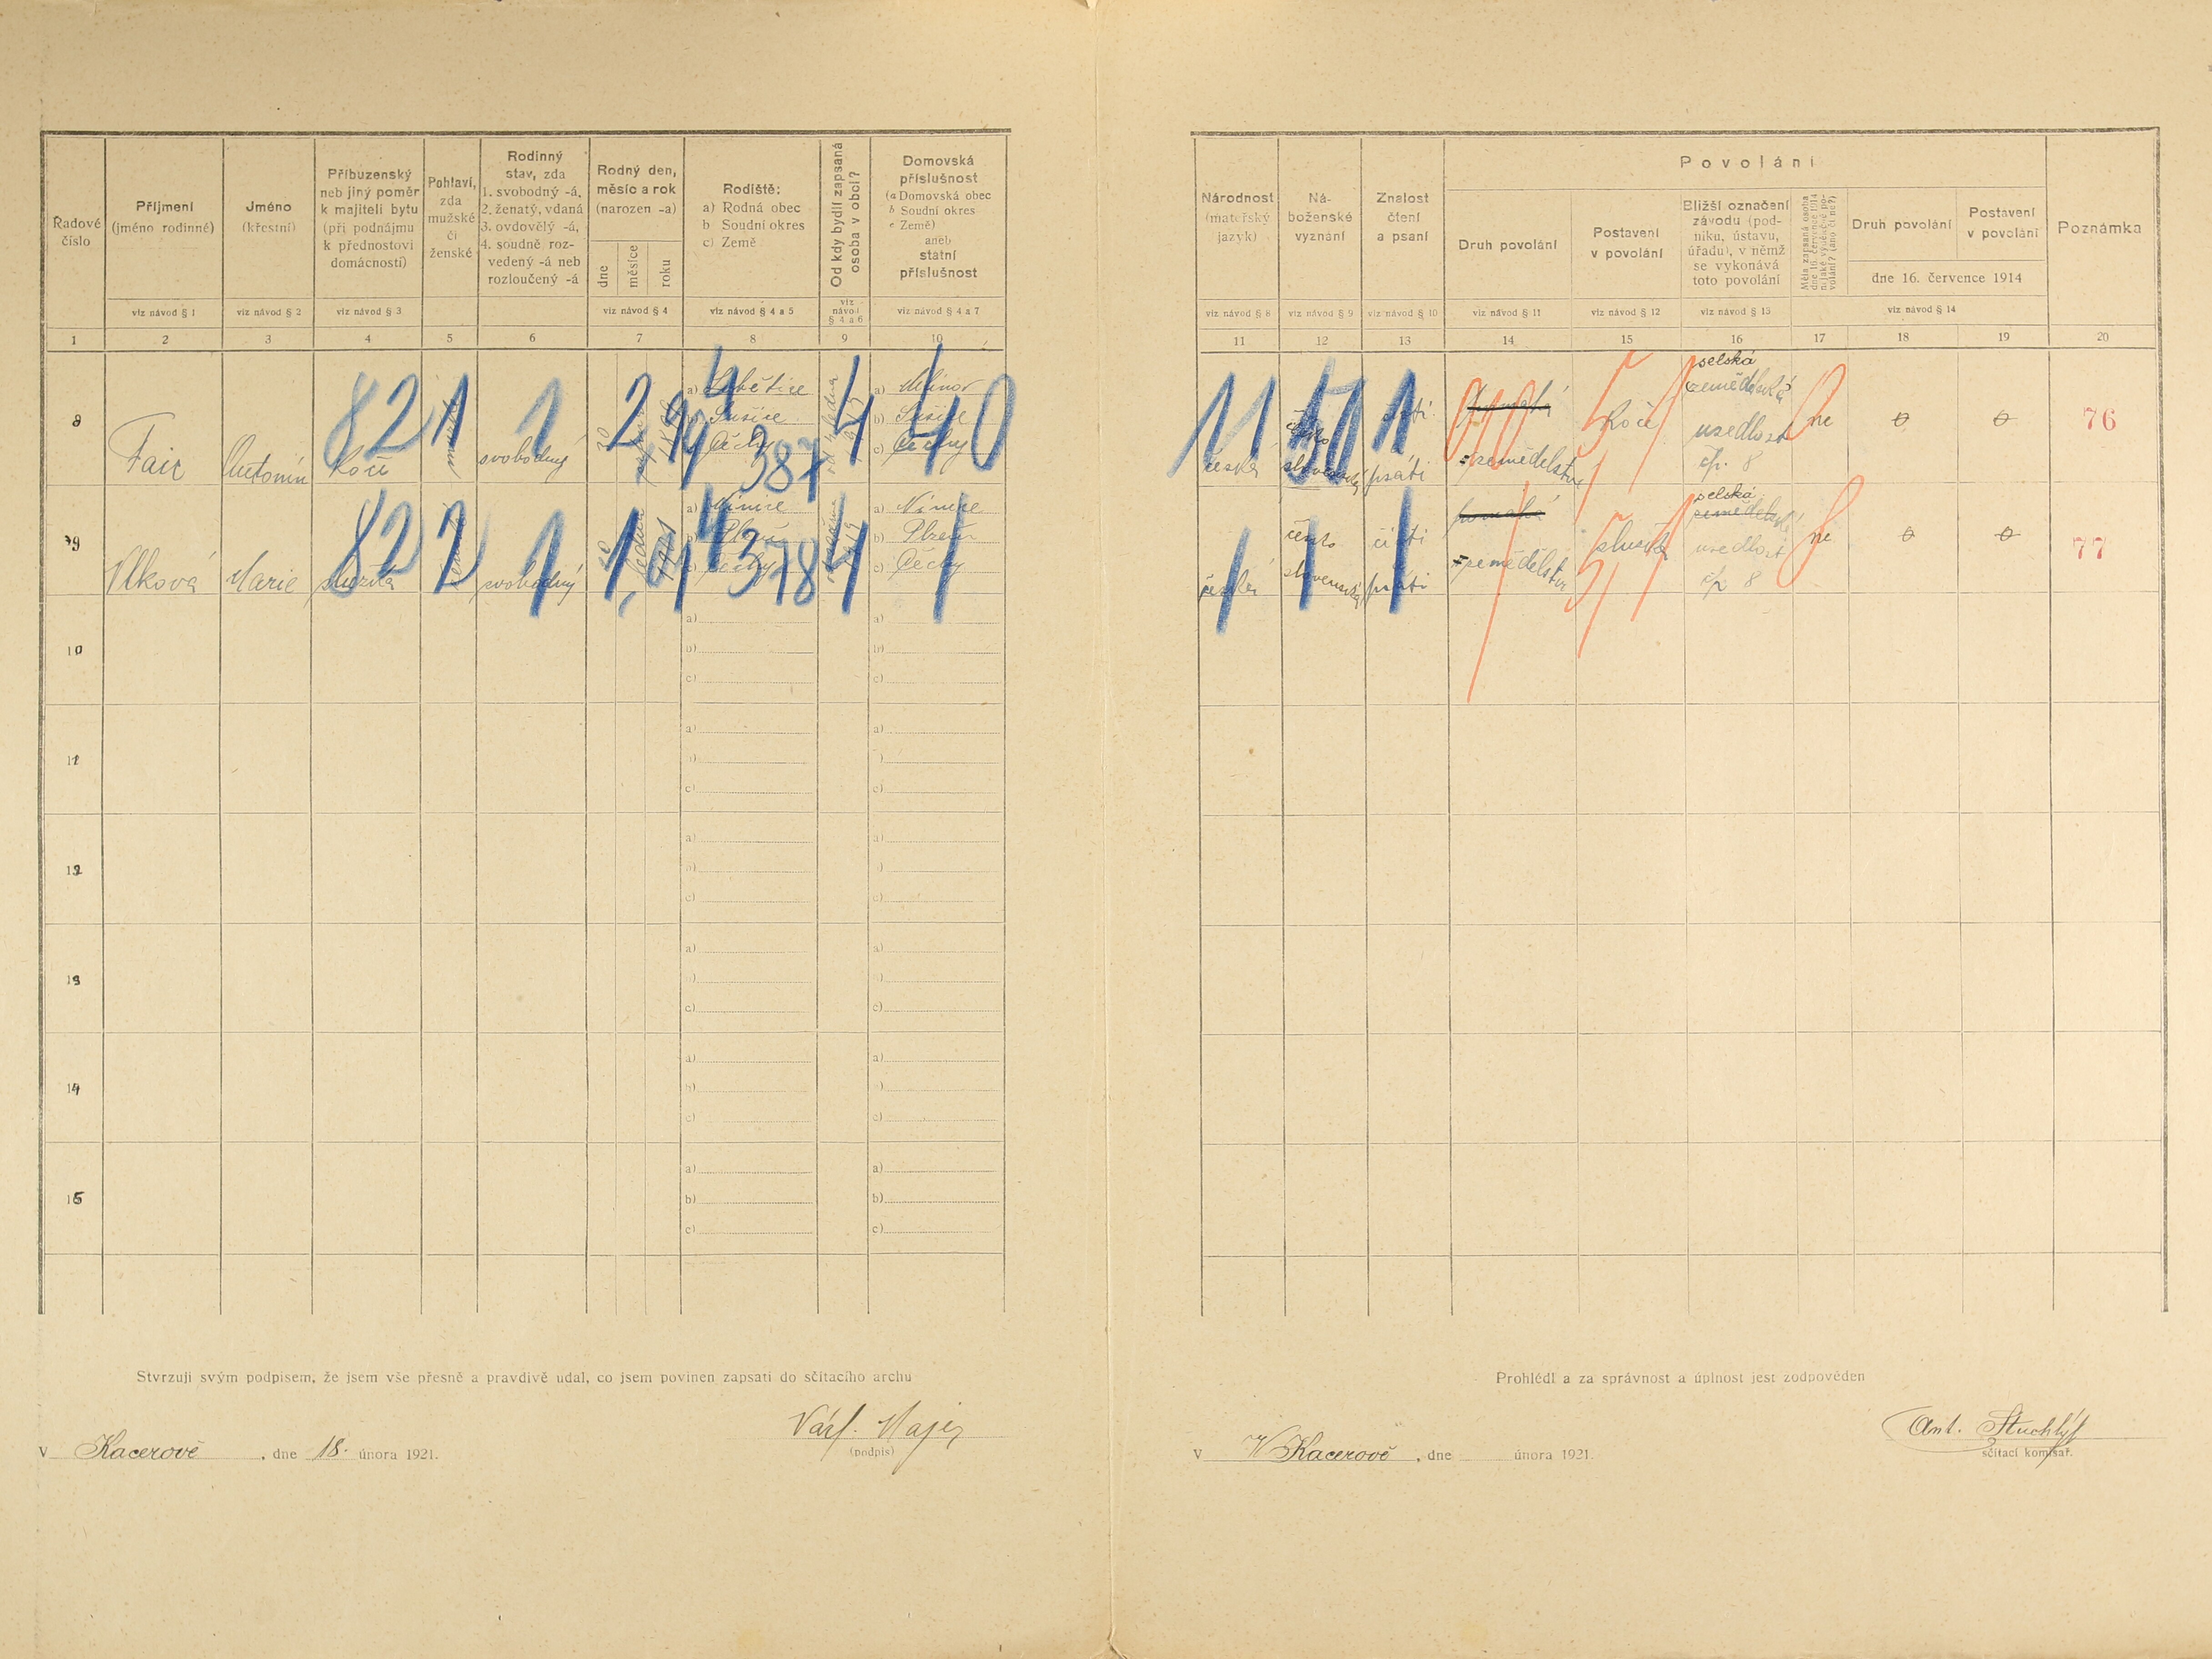 Řadové číslo
Příjmení (jméno rodinné)
Jméno (křestní)
Příbuzenský neb jiný poměr k majiteli bytu (při podnájmu k přednostovi domácnosti)
Pohlaví, zda mužské či ženské
Rodinný stav, zda 1. svobodný -á, 2. ženatý, vdaná 3. ovdovělý -á, 4. soudně rozvedený -á neb rozloučený -á
Rodný den, měsíc a rok (narozen -a)
dne měsíce roku
Rodiště: a) Rodná obec b Soudní okres c) Země
Od kdy bydlí zapsaná osoba v obci?
Domovská příslušnost (a Domovská obec b Soudní okres c Země) aneb státní příslušnost
viz návod § 1
viz návod § 2
viz návod § 3
viz návod § 4
viz návod § 4 a 5
viz návod § 4 a 6
viz návod § 4 a 7
1 2 3 4 5 6 7 8 9 10
Národnost (mateřský jazyk)
Náboženské vyznání
Znalost čtení a psaní
Povolání
Druh povolání
Postavení v povolání
Bližší označení závodu (podniku, ústavu, úřadu), v němž se vykonává toto povolání
Druh povolání
Postavení v povolání
dne 16. července 1914
Poznámka
viz návod § 8
viz návod § 9
viz návod § 10
viz návod § 11
viz návod § 12
viz návod § 13
viz návod § 14
11 12 13 14 15 16 17 18 19 20
8 Faic Antonín kočí
82 1 1 2
svobodný
a)
b) Sušice
c) Čechy
387
4
a)
b) Sušice
c) Čechy
40
11 česká
1
psáti
zemědělství
kočí
selská
zemědělská
usedlost
čp. 8
ne
0 0
76
9 Vlková Marie služka
82 2 1 1
svobodný
a) Nýnice
b) Plzeň
c) Čechy
378
4
a) Nýnice
b) Plzeň
c) Čechy
1
česká
česko
slovenská
čísti
psáti
zemědělství
služka
selská
zemědělská
usedlost
čp 8
ne
0 0
77
10
a)
b)
c)
a)
b)
c)
11
a)
c)
a)
c)
12
a)
c)
a)
c)
13
a)
c)
a)
c)
14
a)
b)
c)
a)
c)
15
a)
b)
c)
a)
b)
c)
Stvrzuji svým podpisem, že jsem vše přesně a pravdivě udal, co jsem povinen zapsati do sčítacího archu
V Kacerově, dne 18. února 1921.
Majer
(podpis)
Prohlédl a za správnost a úplnost jest zodpověden
V V Kacerově, dne února 1921.
Ant. Stuchlý
sčítací komisař.